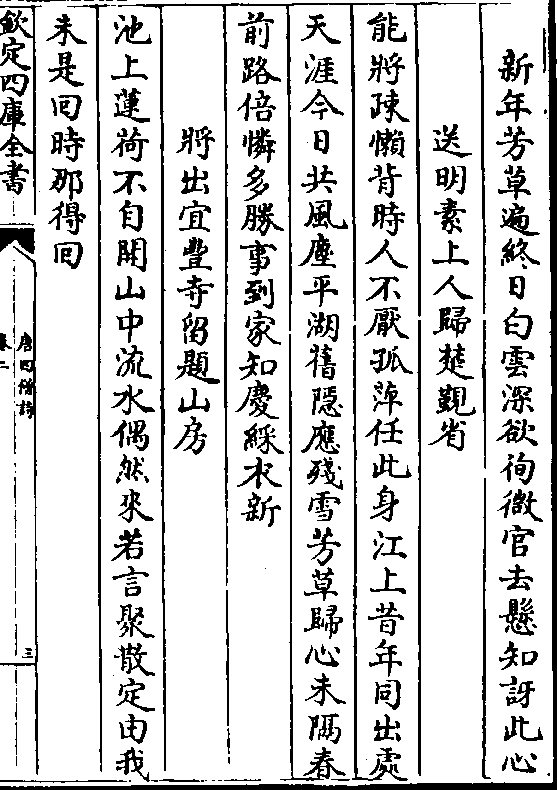 新年芳草遍終日白雲深欲徇微官去懸知訝此心
送明素上人歸楚覲省
能將疎懶背時人不厭孤萍任此身江上昔年同出處
天涯今日共風塵平湖舊隱應殘雪芳草歸心未隔春
前路倍憐多勝事到家知慶綵衣新
將出宜豐寺留題山房
池上蓮荷不自開山中流水偶然來若言聚散定由我
未是回時那得回
欽定四庫全書
唐四僧詩
卷二
三